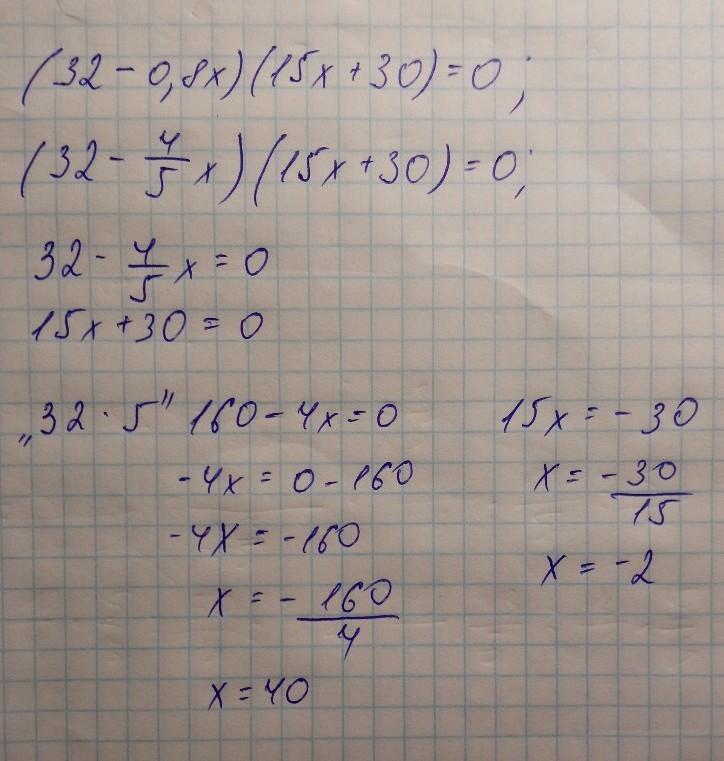 (32 - 0,8x)(15x + 30) = 0;
(32 - 4/5 x)(15x + 30) = 0;
32 - 4/5 x = 0
15x + 30 = 0
„32 · 5" 160 - 4x = 0
-4x = 0 - 160
-4x = -160
x = - 160/4
x = 40
15x = -30
x = -30/15
x = -2